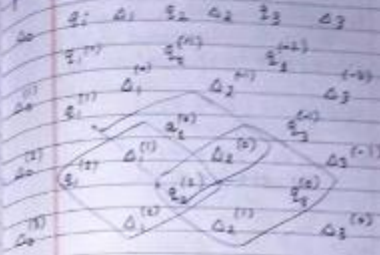 Δ₀ q₁ Δ₁ q₂ Δ₂ q₃ Δ₃
q₁⁽⁰⁾ q₂⁽⁻¹⁾ q₃⁽⁻²⁾
Δ₀⁽¹⁾ Δ₁⁽⁰⁾ Δ₂⁽⁻¹⁾ Δ₃⁽⁻²⁾
q₁⁽¹⁾ q₂⁽⁰⁾ q₃⁽⁻¹⁾
Δ₀⁽²⁾ Δ₁⁽¹⁾ Δ₂⁽⁰⁾ Δ₃⁽⁻¹⁾
q₁⁽²⁾ q₃⁽⁰⁾
Δ₀⁽³⁾ Δ₁⁽²⁾ Δ₂⁽¹⁾ Δ₃⁽⁰⁾